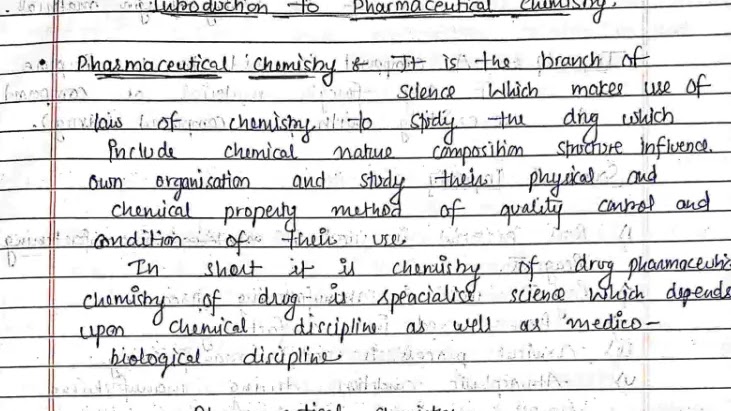 Introduction to Pharmaceutical Chemistry.
• Pharmaceutical Chemistry :- It is the branch of
science which makes use of
laws of chemistry to study the drug which
include chemical nature composition structure influence.
own organisation and study their physical and
chemical property method of quality control and
condition of their use.
In short it is chemistry of drug pharmaceutic
chemistry of drug is speacialise science which depends
upon chemical discipline as well as medico-
biological discipline.